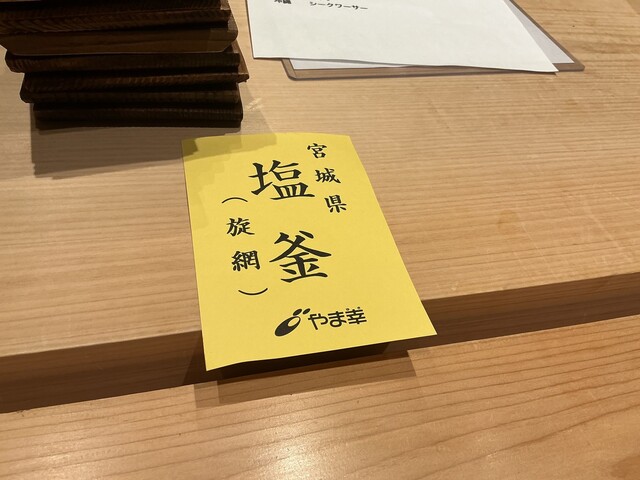 沖縄
シークワーサー
宮城県
塩釜
（旋網）
やま幸